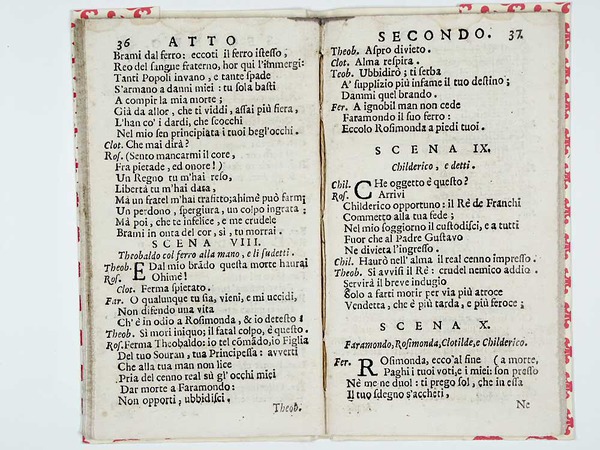 36 ATTO
Brami dal ferro: eccoti il ferro istesso,
Reo del sangue fraterno, hor qui l'immergi:
Tanti Popoli invano, e tante spade
S'armano a danni miei: tu sola basti
A compir la mia morte;
Già da allor, che ti viddi, assai più fiera,
L'han co' i dardi, che scocchi
Nel mio sen principiata i tuoi begl'occhi.
Clot. Che mai dirà?
Ros. (Sento mancarmi il core,
Fra pietade, ed onore!)
Un Regno tu m'hai reso,
Libertà tu m'hai data,
Mà un fratel m'hai trafitto; ahimè può farmi
Un perdono, spergiura, un colpo ingrata;
Mà poi, che te infelice, e me crudele
Brami in onta del cor, sì, t morrai.
SCENA VIII.
Theobaldo col ferro alla mano, e li sudetti.
Theob. E Dal mio brādo questa morte haurai
Ros. Ohime!
Clot. Ferma spietato.
Far. O qualunque tu sia, vieni, e mi uccidi,
Non difendo una vita
Ch'è in odio a Rosimonda, & io detesto!
Theob. Si mori iniquo; il fatal colpo, è questo.
Ros. Ferma Theobaldo: io tel comādo, io Figlia
Del tuo Souran, tua Principessa: avverti
Che alla tua man non lice
Pria del cenno real sù gl'occhi miei
Dar morte a Faramondo:
Non opporti, ubbidisci.
Theob.
SECONDO. 37
Theob. Aspro divieto.
Clot. Alma respira.
Teob. Ubbidirò; ti serba
A' supplizio più infame il tuo destino;
Dammi quel brando.
Far. A ignobil man non cede
Faramondo il suo ferro:
Eccolo Rosimonda a piedi tuoi.
SCENA IX.
Childerico, e detti.
Chil. CHe oggetto è questo?
Ros. Arrivi
Childerico opportuno: il Rè de Franchi
Commetto alla tua fede;
Nel mio soggiorno il custodisci, e a tutti
Fuor che al Padre Gustavo
Ne divieta l'ingresso.
Chil. Haurò nell'alma il real cenno impresso.
Theob. Si avvisi il Rè: crudel nemico addio.
Servirà il breve indugio
Solo a farti morir per via più atroce
Vendetta, che è più tarda, e più feroce;
SCENA X.
Faramondo, Rosimonda, Clotilde, e Childerico.
Fer. ROsimonda, ecco al fine (a morte,
Paghi i tuoi voti, e i miei: son presso
Nè me ne duol: ti prego sol, che in essa
Il tuo sdegno s'accheti,
Ne